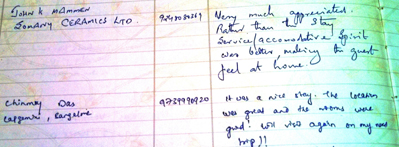 JOHN K MAMMEN
SOMANY CERAMICS LTD.
Very much appreciated.
Rather than the stay
Service/accomodative Spirit
was better making the guest
feel at home.
Chinmoy Das
Capgemini, Bangalore
9739990920
It was a nice stay. The location
was great and the rooms were
good. Will visit again on my next
trip!!